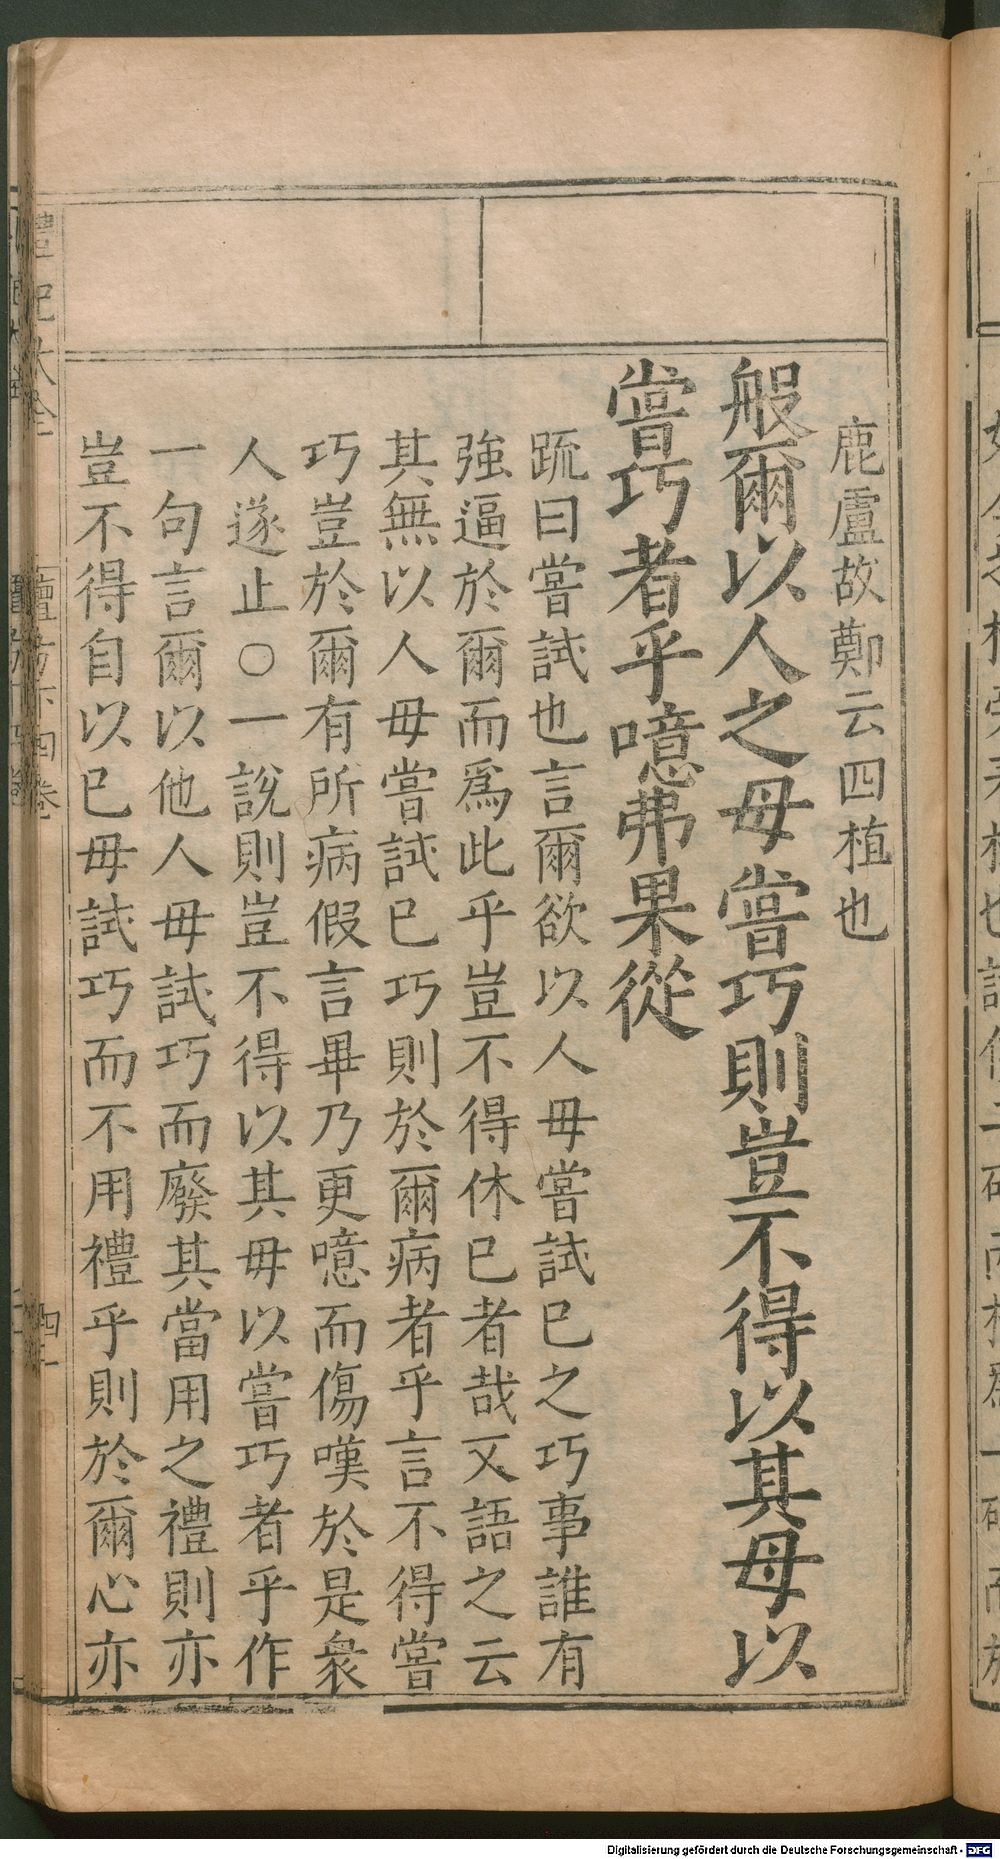 鹿盧故鄭云四植也
般爾以人之母嘗巧則豈不得以其母以
嘗巧者乎噫弗果從
䟽曰嘗試也言爾欲以人母嘗試巳之巧事誰有
強逼於爾而爲此乎豈不得休巳者哉又語之云
其無以人母嘗試巳巧則於爾病者乎言不得嘗
巧豈於爾有所病假言畢乃更噫而傷嘆於是衆
人遂止○一說則豈不得以其母以嘗巧者乎作
一句言爾以他人母試巧而廢其當用之禮則亦
豈不得自以巳母試巧而不用禮乎則於爾心亦
禮記大全
檀弓下四卷
Digitalisierung gefördert durch die Deutsche Forschungsgemeinschaft - DFG